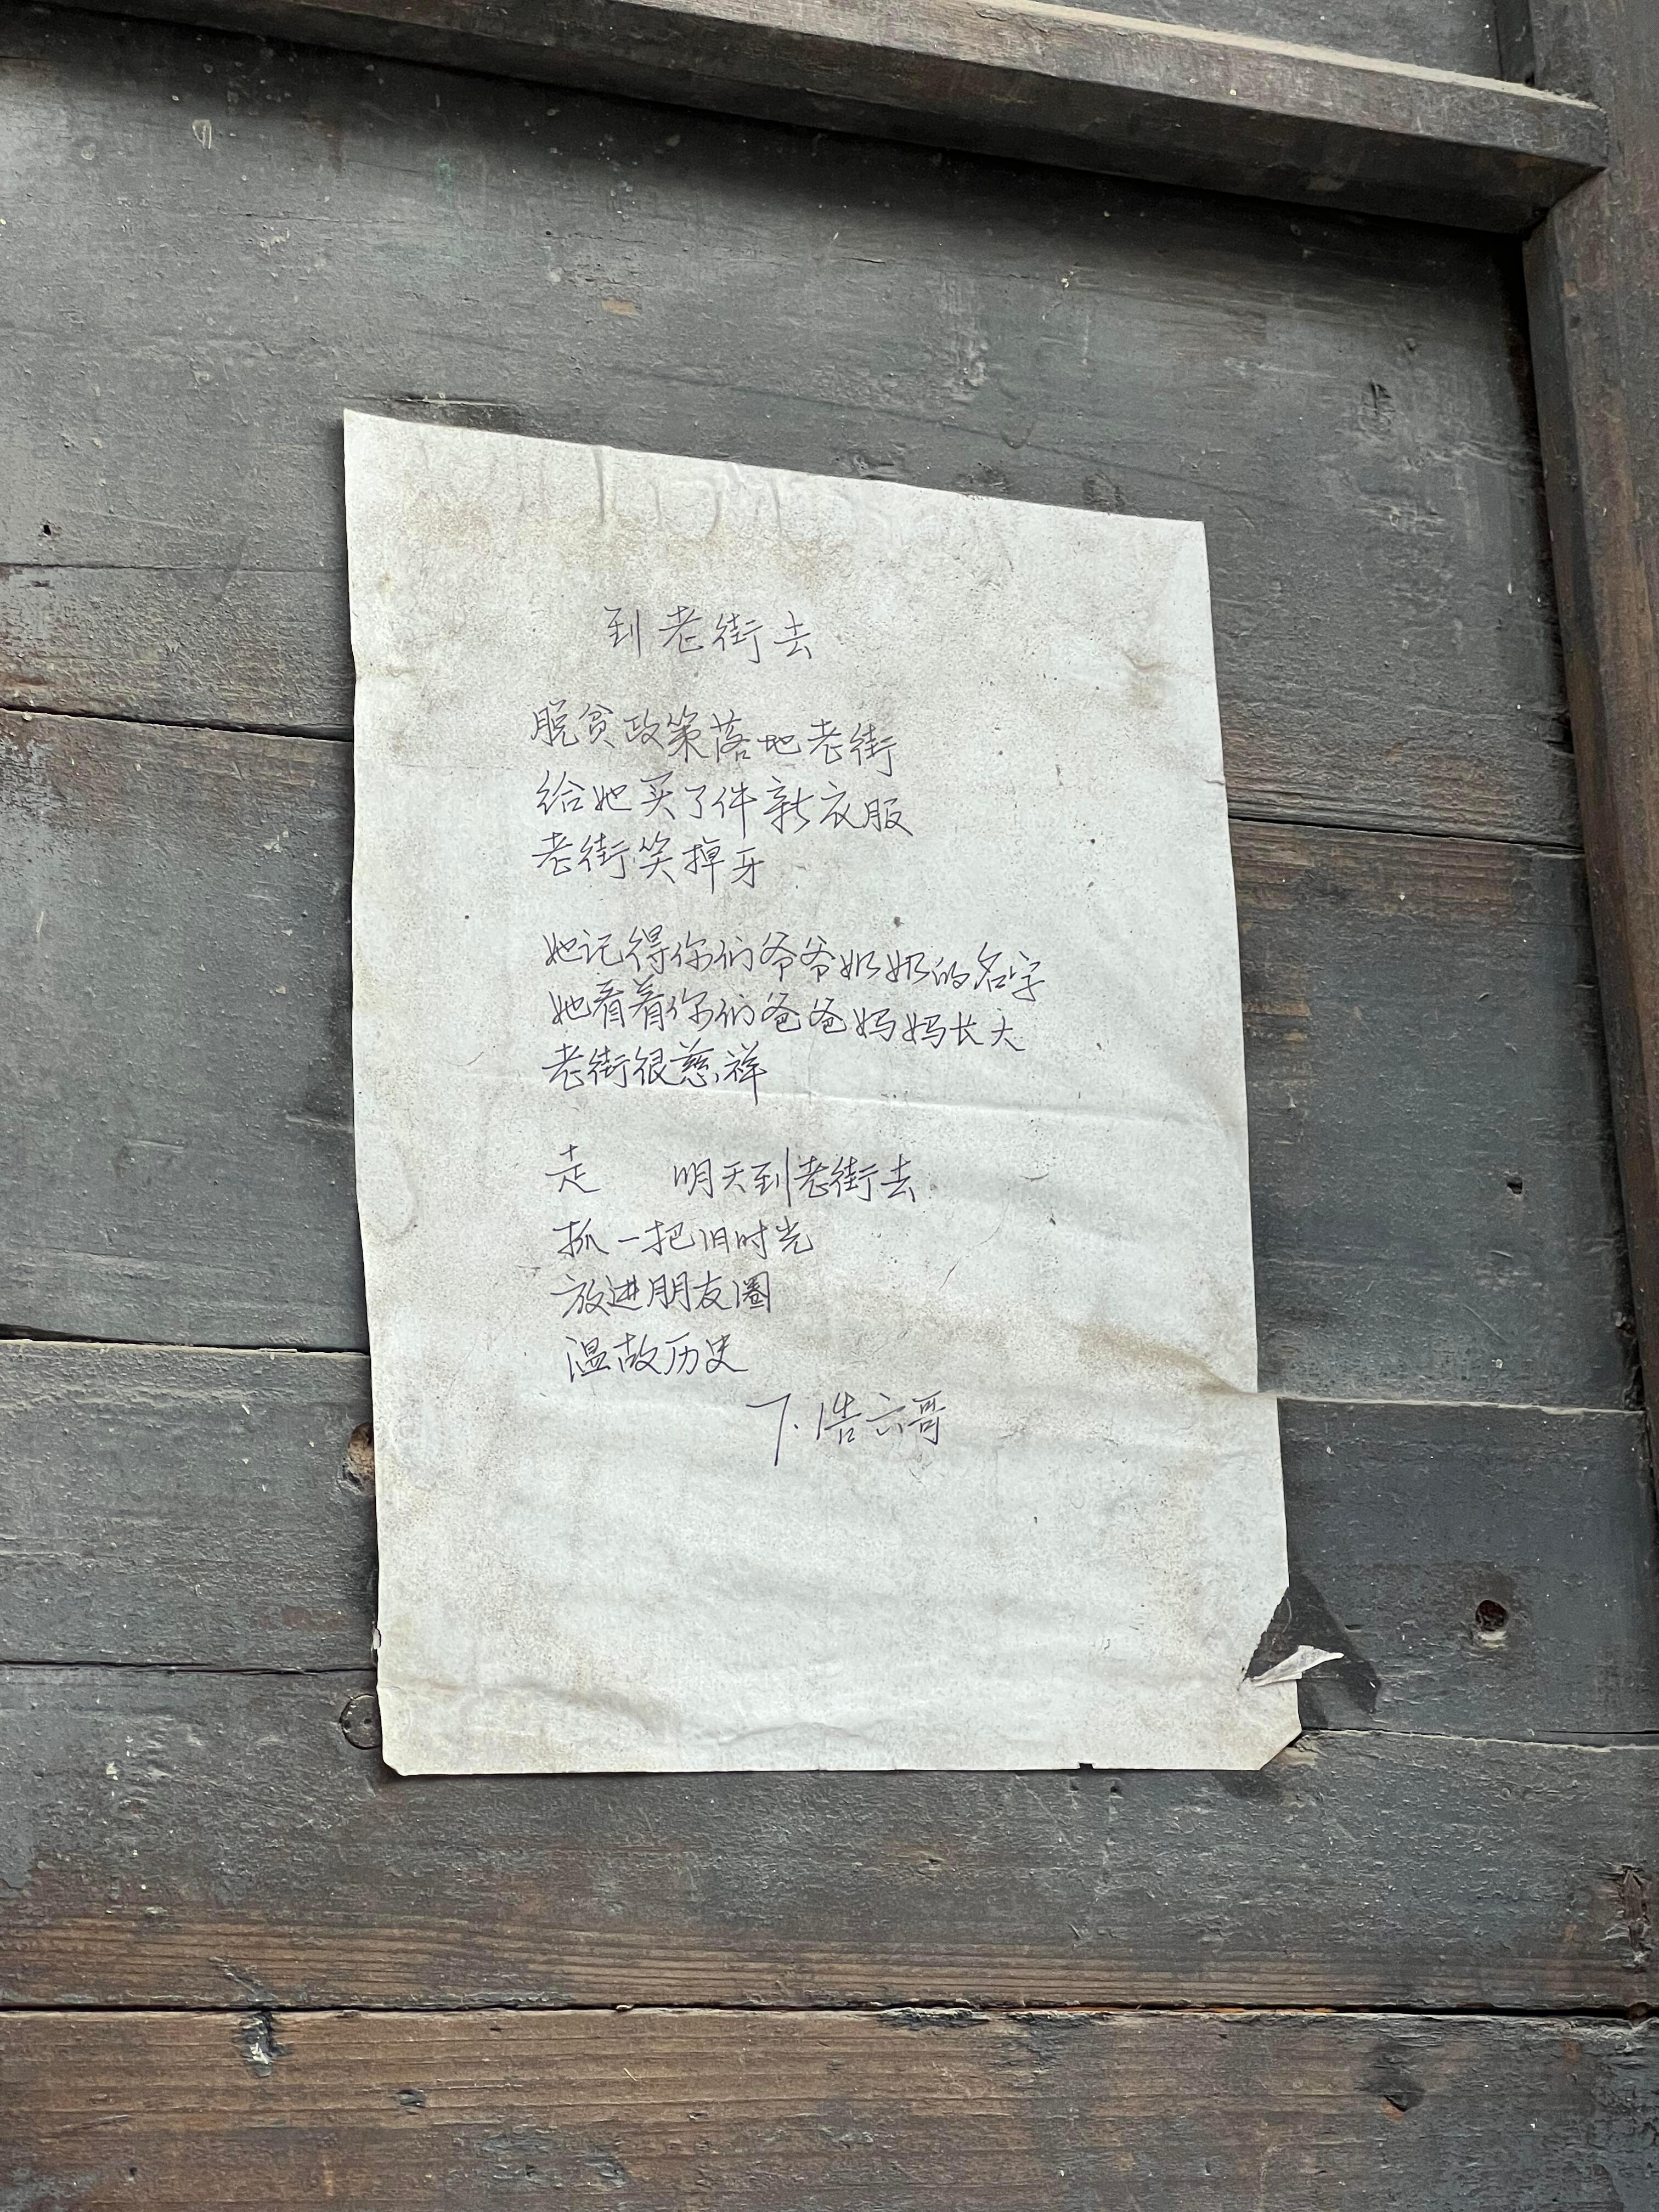 到老街去
脱贫政策落地老街
给她买了件新衣服
老街笑掉牙
她记得你们爷爷奶奶的名字
她看着你们爸爸妈妈长大
老街很慈祥
走 明天到老街去
抓一把旧时光
放进朋友圈
温故历史
浩六哥